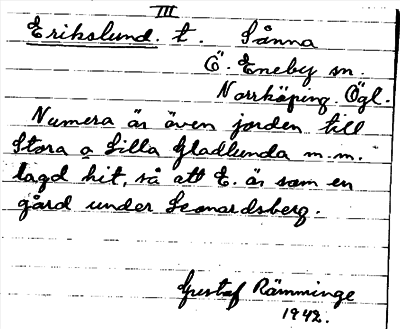 III
Erikslund. t. Sånna
Ö. Eneby sn.
Norrköping. Ögl.
Numera är även jorden till
Stora o Lilla Gladlunda m.m.
lagd hit, så att E. är som en
gård under Leonardsberg.
Gustaf Rämminge
1942.